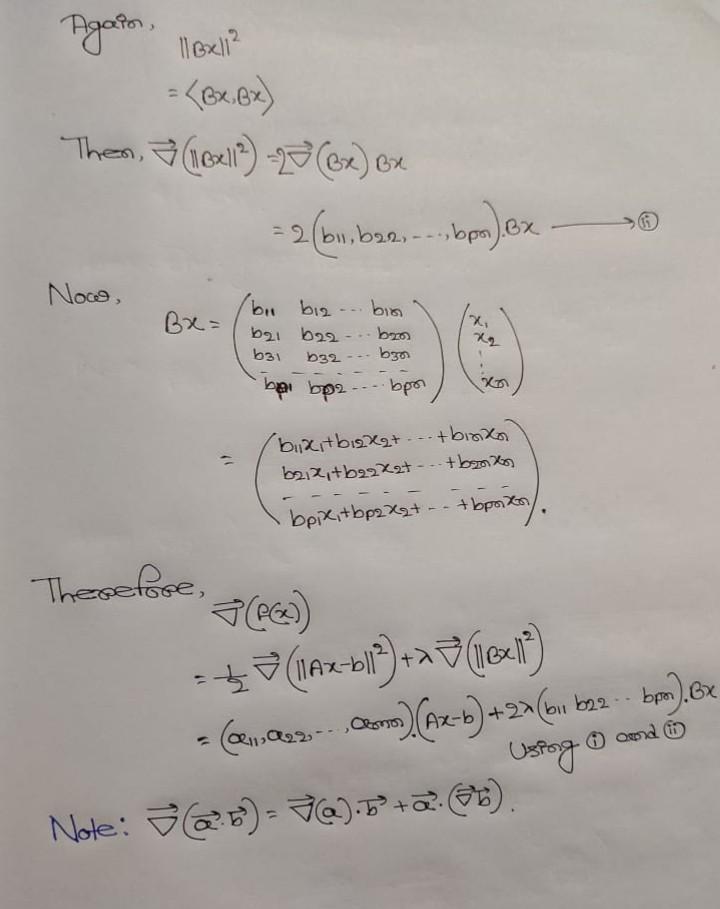 Again,
||Bx||²
= ⟨Bx, Bx⟩
Then, ∇⃗(||Bx||²) = 2∇⃗(Bx) Bx
= 2(b11, b22, ---, bpn).Bx ⟶ (ii)
Now,
Bx = ( b11 b12 --- b1n ) ( x1 )
b21 b22 --- b2n x2
b31 b32 --- b3n ⋮
- - - - - - - -
bp1 bp2 ---- bpn xn
= ( b11x1+b12x2+ --- +b1nxn )
b21x1+b22x2+ --- +b2nxn
- - - - - - - -
bp1x1+bp2x2+ -- +bpnxn .
Therefore,
∇⃗(f(x))
= 1/2 ∇⃗(||Ax-b||²)+λ∇⃗(||Bx||²)
= (a11, a22, ---, amn).(Ax-b)+2λ(b11 b22 -- bpn).Bx
Using (i) and (ii)
Note: ∇⃗(a⃗.b⃗) = ∇⃗(a).b⃗ + a⃗.(∇⃗b⃗).